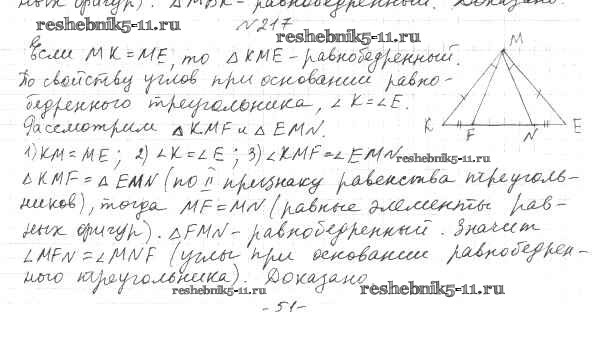 ных фигур). △MBK - равнобедренный. Доказано.
reshebnik5-11.ru
N 217
reshebnik5-11.ru
Если MK = ME, то △KME - равнобедренный.
По свойству углов при основании равно-
бедренного треугольника, ∠K = ∠E.
Рассмотрим △KMF и △EMN.
1) KM = ME; 2) ∠K = ∠E; 3) ∠KMF = ∠EMN
reshebnik5-11.ru
△KMF = △EMN (по II признаку равенства треуголь-
ников), тогда MF = MN (равные элементы рав-
ных фигур). △FMN - равнобедренный. Значит
∠MFN = ∠MNF (углы при основании равнобедрен-
ного треугольника). Доказано
reshebnik5-11.ru
reshebnik5-11.ru
- 51 -
M
K F N E